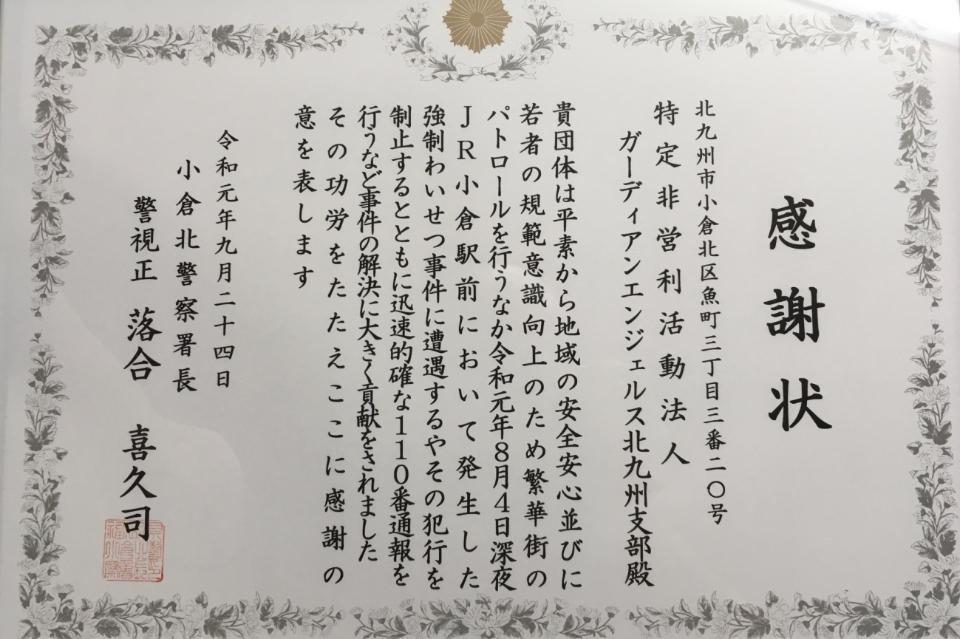 感謝状
北九州市小倉北区魚町三丁目三番二〇号
特定非営利活動法人
ガーディアンエンジェルス北九州支部殿
貴団体は平素から地域の安全安心並びに
若者の規範意識向上のため繁華街の
パトロールを行うなか令和元年8月4日深夜
JR小倉駅前において発生した
強制わいせつ事件に遭遇するやその犯行を
制止するとともに迅速的確な110番通報を
行うなど事件の解決に大きく貢献をされました
その功労をたたえここに感謝の
意を表します
令和元年九月二十四日
小倉北警察署長
警視正 落合 喜久司